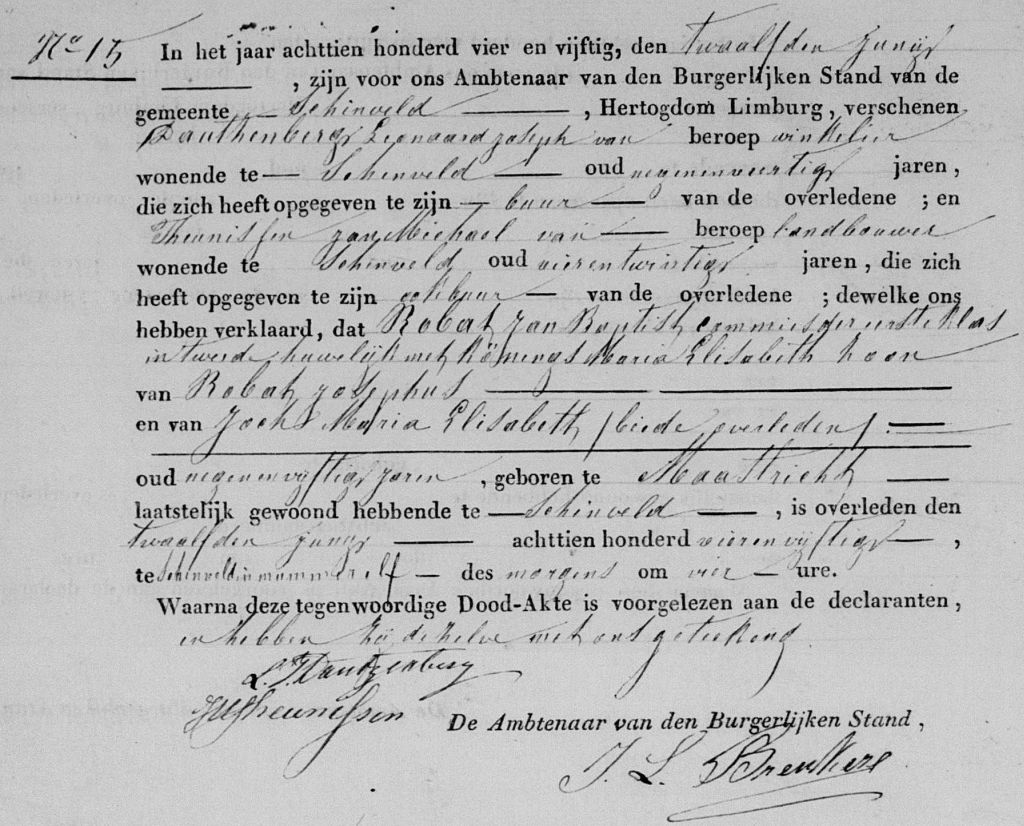 No 15 In het jaar achttien honderd vier en vijftig, den twaalfden Junij
, zijn voor ons Ambtenaar van den Burgerlijken Stand van de
gemeente Schinveld , Hertogdom Limburg, verschenen
Dauthenberg Leonaard Joseph van beroep winkelier
wonende te Schinveld oud negenenveertig jaren,
die zich heeft opgegeven te zijn buur van de overledene ; en
Theunissen Jan Michael van beroep Landbouwer
wonende te Schinveld oud vierentwintig jaren, die zich
heeft opgegeven te zijn ook buur van de overledene ; dewelke ons
hebben verklaard, dat Robat Jan Baptist commies der eerste klas
in tweede huwelijk met Könings Maria Elisabeth zoon
van Robat Josephus
en van Maria Elisabeth (beide overleden)
oud negenenvijftig jaren , geboren te Maastricht
laatstelijk gewoond hebbende te Schinveld , is overleden den
twaalfden Junij achttien honderd vierenvijftig ,
te Schinveld in nummer elf des morgens om vier ure.
Waarna deze tegenwoordige Dood-Akte is voorgelezen aan de declaranten,
en hebben zij dezelve met ons geteekend
L. J. Dautzenberg
JM Theunissen
De Ambtenaar van den Burgerlijken Stand,
J. L.